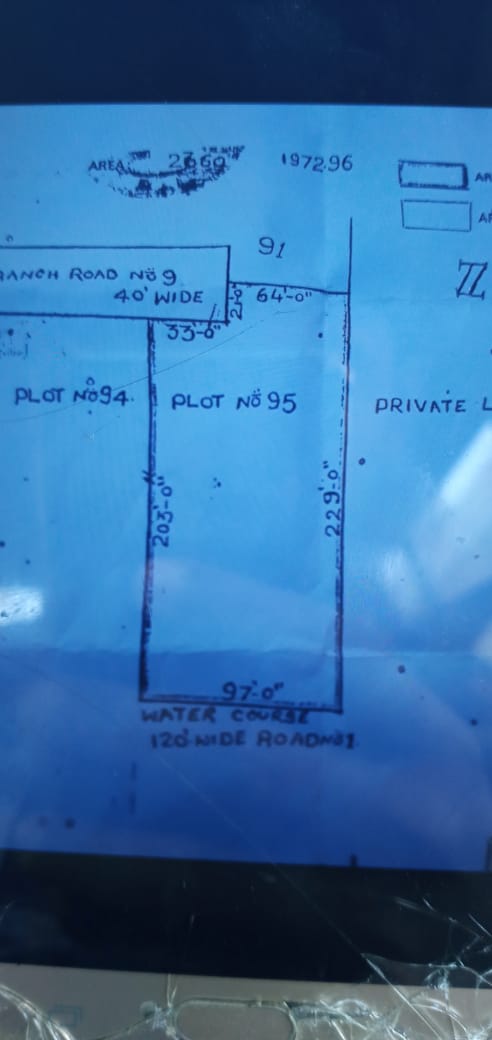 AREA: 2660 1972.96
91
ANCH ROAD Nö 9
40' WIDE
64'-0"
33'-0"
PLOT Nö 94.
PLOT Nö 95
PRIVATE L
203'-0"
229'-0"
97'-0"
WATER COURSE
120' WIDE ROAD Nö 1.